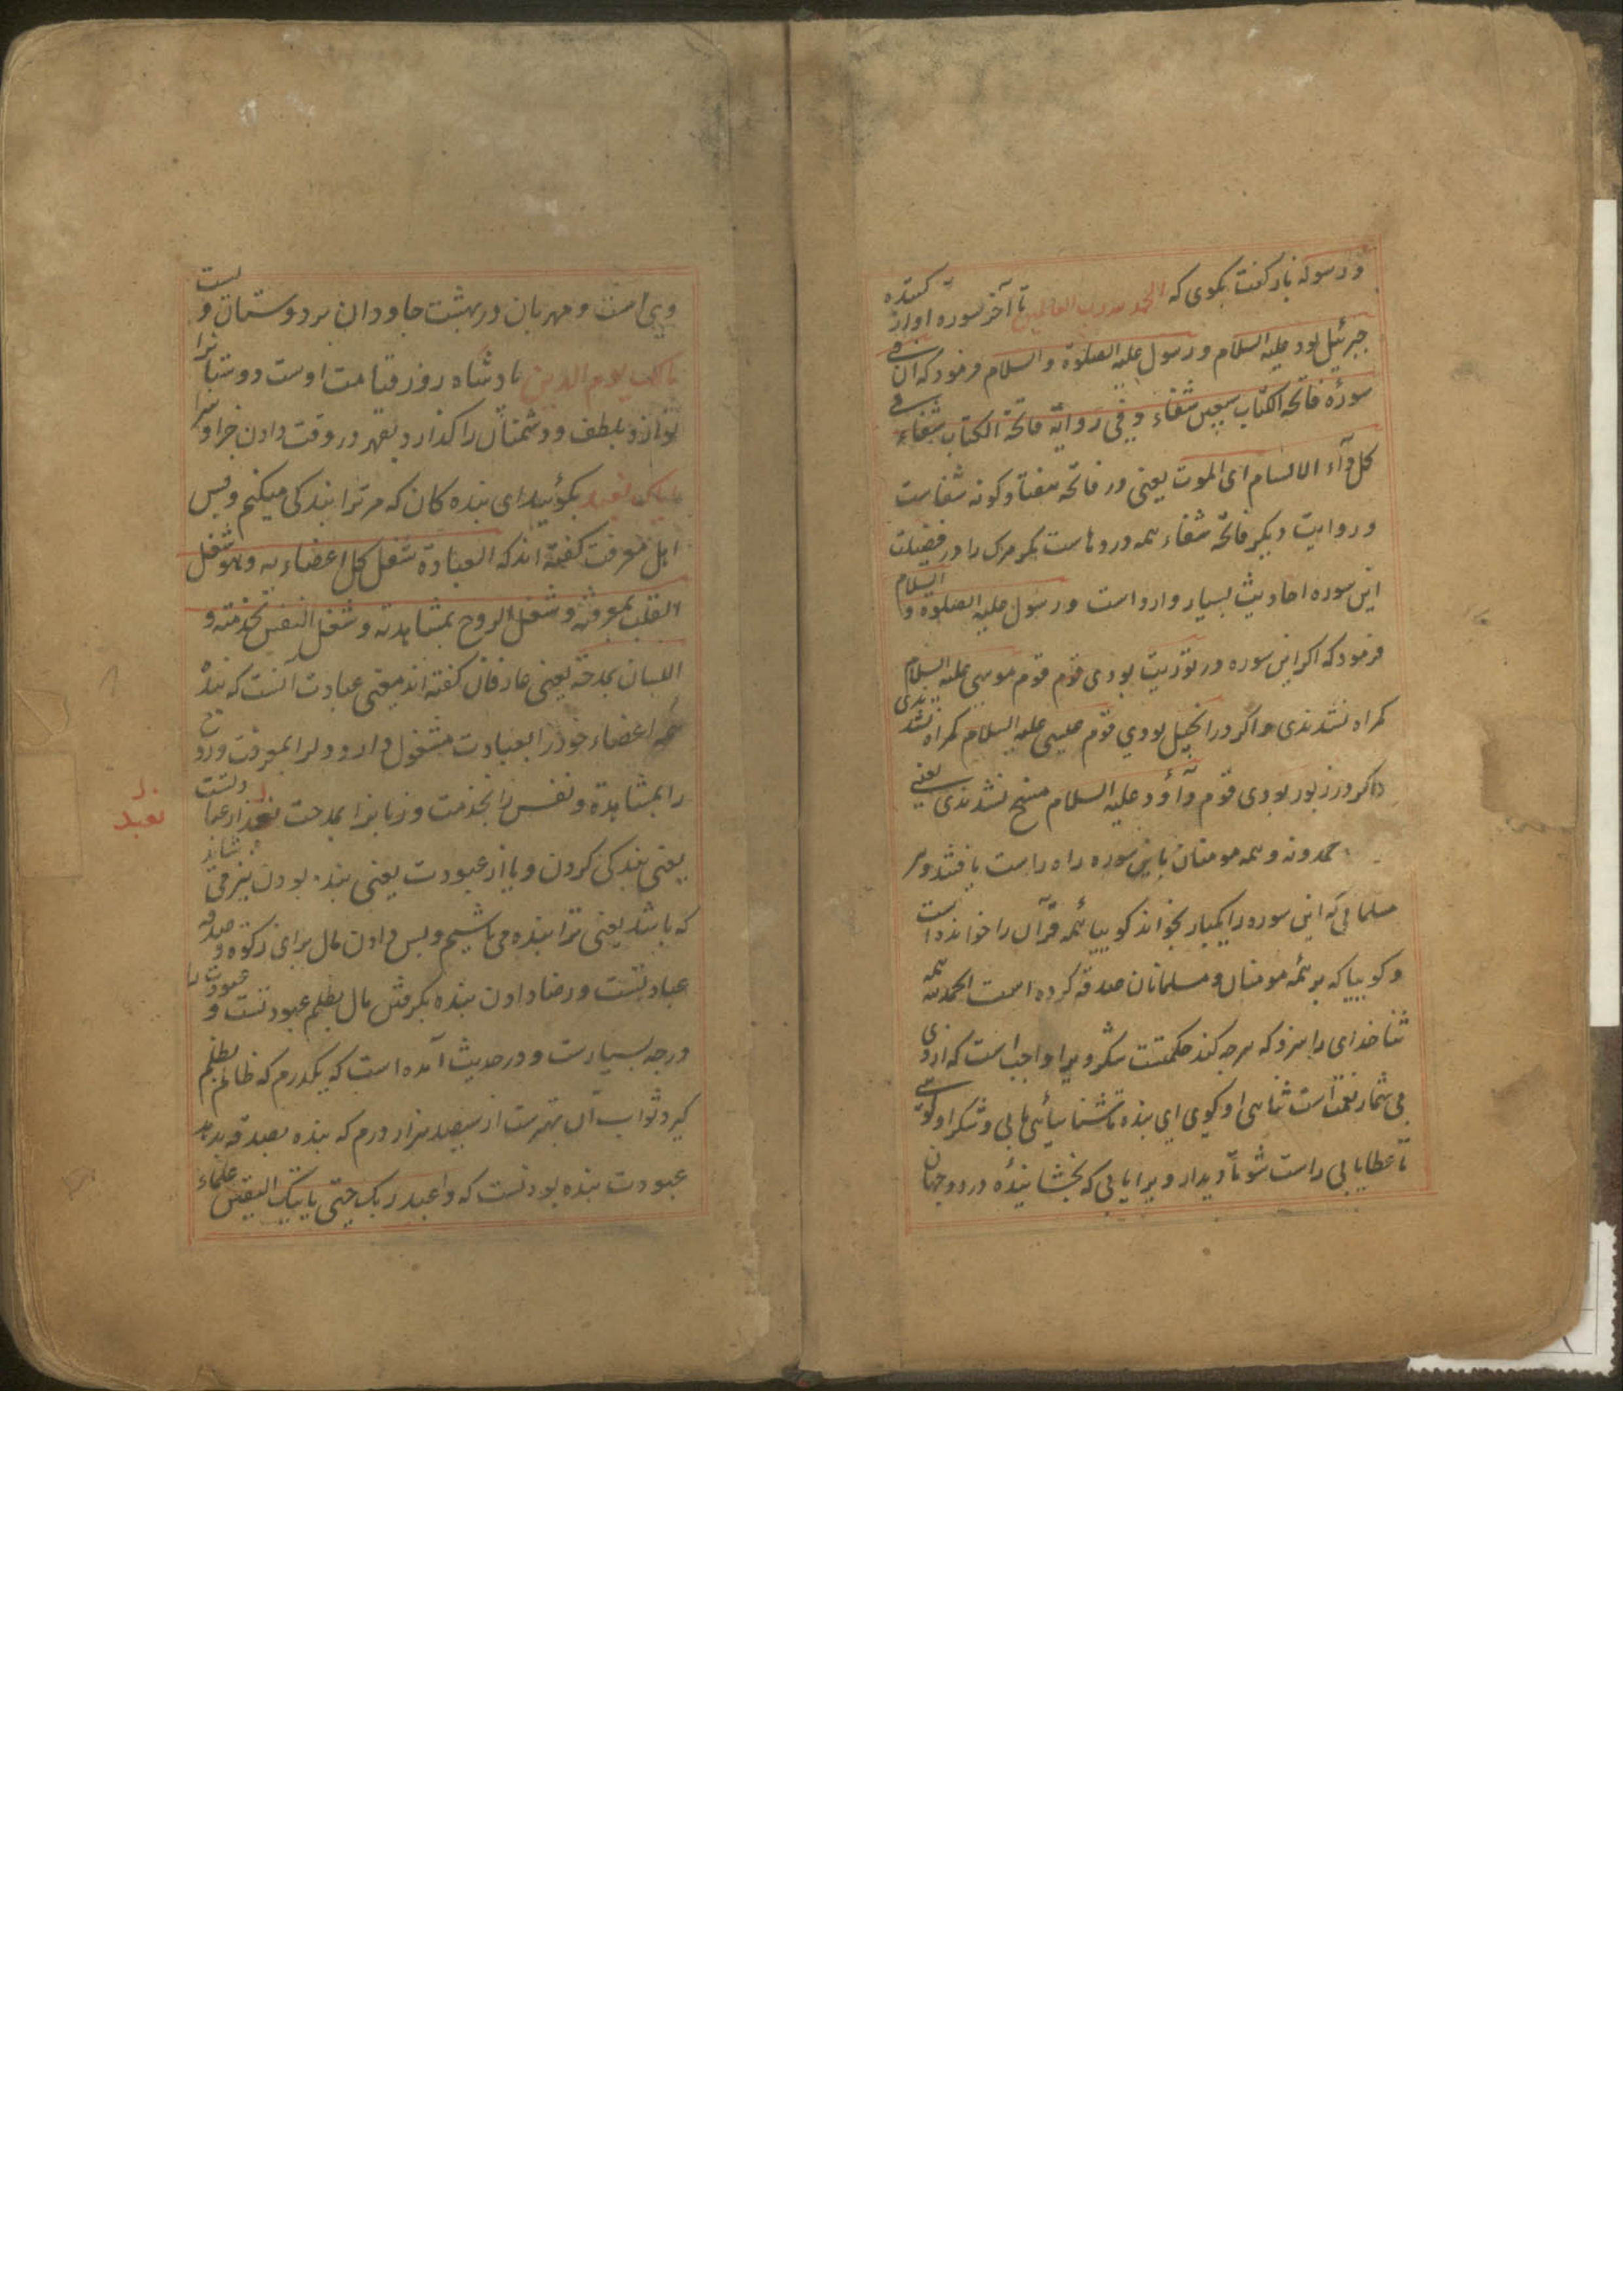 و رسوله باز گفت بگوی که الحمد لله رب العالمین تا آخر سوره آواز کننده
جبرئیل بود علیه السلام و رسول علیه الصلوة و السلام فرمود که ان فی
سورة فاتحة الکتاب سبعین شفاء و فی روایة فاتحة الکتاب شفاء فی
کل داء الا السام ای الموت یعنی در فاتحه هفتاد کونه شفاست
و روایت دیکر فاتحه شفاء همه دردهاست مکر مرک را در فضیلت
این سوره احادیث بسیار وارد است و رسول علیه الصلوة و السلام
فرمود که اکر این سوره در توریت بودی قوم قوم موسی علیه السلام
کمراه نشدندی و اکر در انجیل بودی قوم عیسی علیه السلام کمراه نشدندی
و اکر در زبور بودی قوم داود علیه السلام مسخ نشدندی یعنی
حمدونه و همه مومنان باین سوره راه راست یافتند و هر
مسلمانی که این سوره را یکبار بخواند کوییا همه قرآن را خوانده است
و کوییا که بر همه مومنان و مسلمانان صدقه کرده است الحمد لله همه
ثنا خدای را سزد که هرچه کند حکمتست شکر ویرا واجب است که از وی
بی شمار نعمت است ثنای او کوی ای بنده تا شناسائی یابی و شکر او کوی
تا عطا یابی راست شو تا دیدار ویرا یابی که بخشاینده در دو جهان
وی است و مهربان در بهشت جاودان بر دوستان ویست
مالک یوم الدین پادشاه روز قیامت اوست دوستانرا
نوازد بلطف و دشمنان را کدازد بقهر در وقت دادن جزا و سزا
ایاک نعبد بکوئید ای بنده کان که مر ترا بندکی میکنم و بس
اهل معرفت کفته اند که العبادة شغل کل اعضاء به و هو شغل
القلب بمعرفته و شغل الروح بمشاهدته و شغل النفس بخدمته و
اللسان بمدحته یعنی عارفان کفته اند معنی عبادت آنست که بنده
همه اعضاء خود را بعبادت مشغول دارد و دلرا بمعرفت و روح
را بمشاهدة و نفس را بخدمت و زبانرا بمدحت نعبد از عبادتست
نعبد
یعنی بندکی کردن و یا از عبودت یعنی بنده بودن نیز می شاید
که باشد یعنی ترا بنده می باشیم و بس دادن مال برای زکوة و صدقه
عبادتست و رضا دادن بنده بکرفتن مال بظلم عبودتست و عبودت را
درجه بسیارست و در حدیث آمده است که یکدرم که ظالم بظلم
کیرد ثواب آن بهترست از سیصد هزار درم که بنده بصدقه بدهد
عبودت بنده بودنست که واعبد ربک حتی یاتیک الیقین علماء